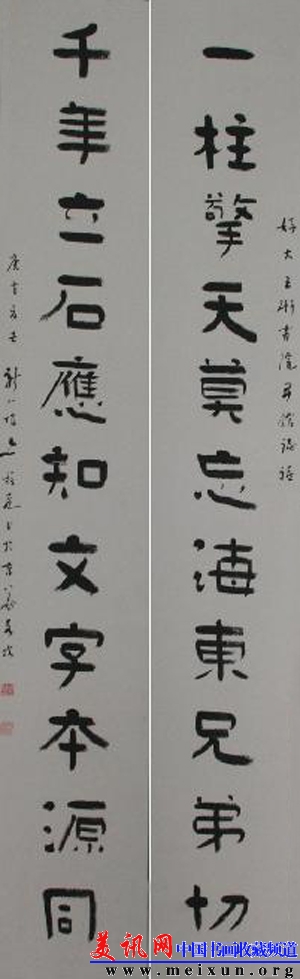 一柱擎天莫忘海東兄弟切
千年立石應知文字本源同
美讯网
中国书画收藏网
www.meixun.org